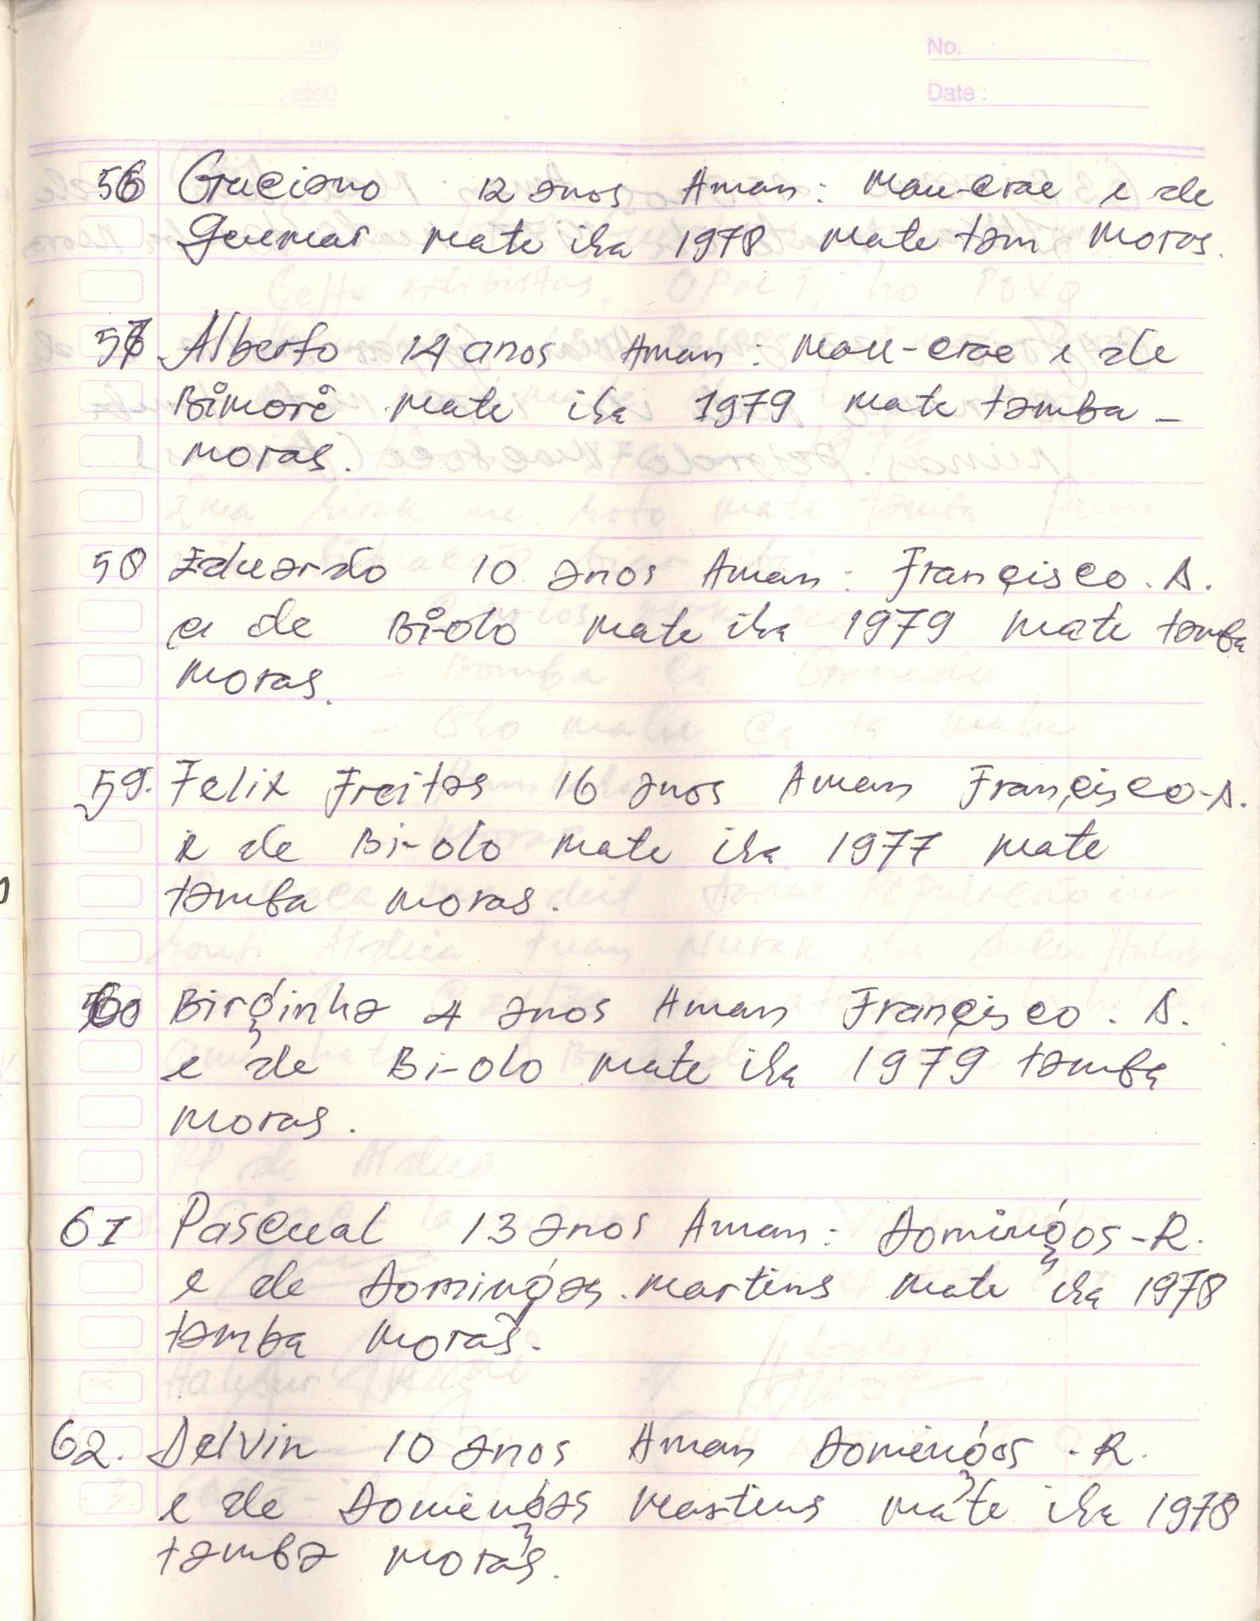 No.
Date :
56 Graciano 12 anos Aman: Mau-crae e de
Geumar mate iha 1978 mate tam moras.
57 Alberto 14 anos Aman: Mau-crae e de
Bimore mate iha 1979 mate tamba -
moras.
58 Eduardo 10 anos Aman: Françisco. A.
e de Bi-olo mate iha 1979 mate tamba
moras.
59. Felix Freitas 16 anos Aman Françisco-A.
e de Bi-olo mate iha 1977 mate
tamba moras.
60 Birginha 4 anos Aman Françisco. A.
e de Bi-olo mate iha 1979 tamba
moras.
61 Pascual 13 anos Aman: Domingos-R.
e de Domingas. Martins mate iha 1978
tamba moras.
62. Delvin 10 anos Aman Domingos -R.
e de Domingas Martins mate iha 1978
tamba moras.